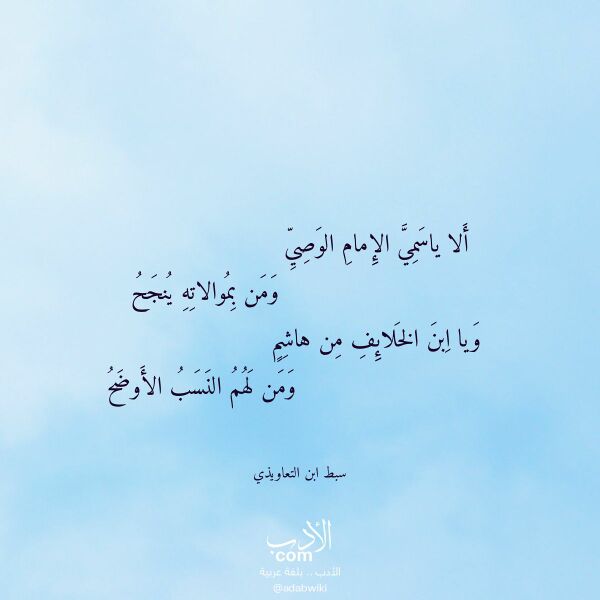 أَلا ياسَمِيَّ الإِمامِ الوَصِيِّ
وَمَن بِمُوالاتِهِ يُنجَحُ
وَيا اِبنَ الخَلائِفِ مِن هاشِمٍ
وَمَن لَهُمُ النَسَبُ الأَوضَحُ
سبط ابن التعاويذي
الأدب
com
الأدب .. بلغة عربية
@adabwiki